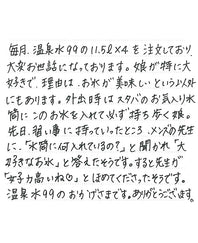 毎月、温泉水99の11.5ℓ×4を注文しており、
大変お世話になっております。娘が特に大
好きで、理由は、お水が美味しいという以外
にもあります。外出時はスタバのお気入り水
筒にこのお水を入れて必ず持ち歩く娘。
先日、習い事に持っていったところ、メンズの先生
に、「水筒に何入れているの？」と聞かれ「大
好きなお水」と答えたそうです。すると先生が
「女子力高いね♡」とほめてくださったそうです。
温泉水99のおかげさまです。ありがとうございます。